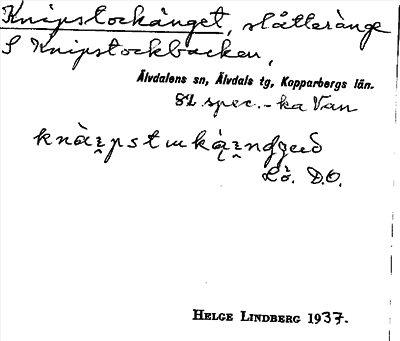 Knipstockänget, slåtteränge
S Knipstockbacken,
Älvdalens sn, Älvdals tg, Kopparbergs län.
82 spec.-ka Van
Lö. D.O.
HELGE LINDBERG 1937.